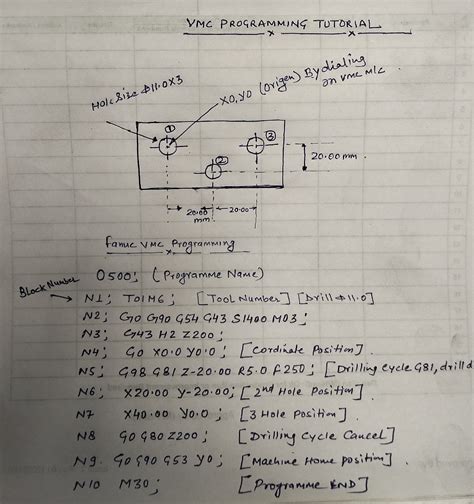 VMC PROGRAMMING TUTORIAL
Hole Size ϕ11.0X3
X0,Y0 (Origen) By dialing
on VMC M/c
①
②
③
20.00 mm
20.00
mm
20.00
Fanuc VMC Programming
Block Number
O500; (Programme Name)
N1; T01M6; [Tool Number] [Drill ϕ11.0]
N2; G0 G90 G54 G43 S1400 M03;
N3; G43 H2 Z200;
N4; G0 X0.0 Y0.0; [Cordinate Position].
N5; G98 G81 Z-20.00 R5.0 F250; [Drilling Cycle G81, drill d
N6; X20.00 Y-20.00; [2nd Hole Position]
N7 X40.00 Y0.0; [3 Hole Position]
N8 G0 G80 Z200; [Drilling Cycle Cancel]
N9. G0 G90 G53 Y0; [Machine Home position]
N10 M30; [Programme END]